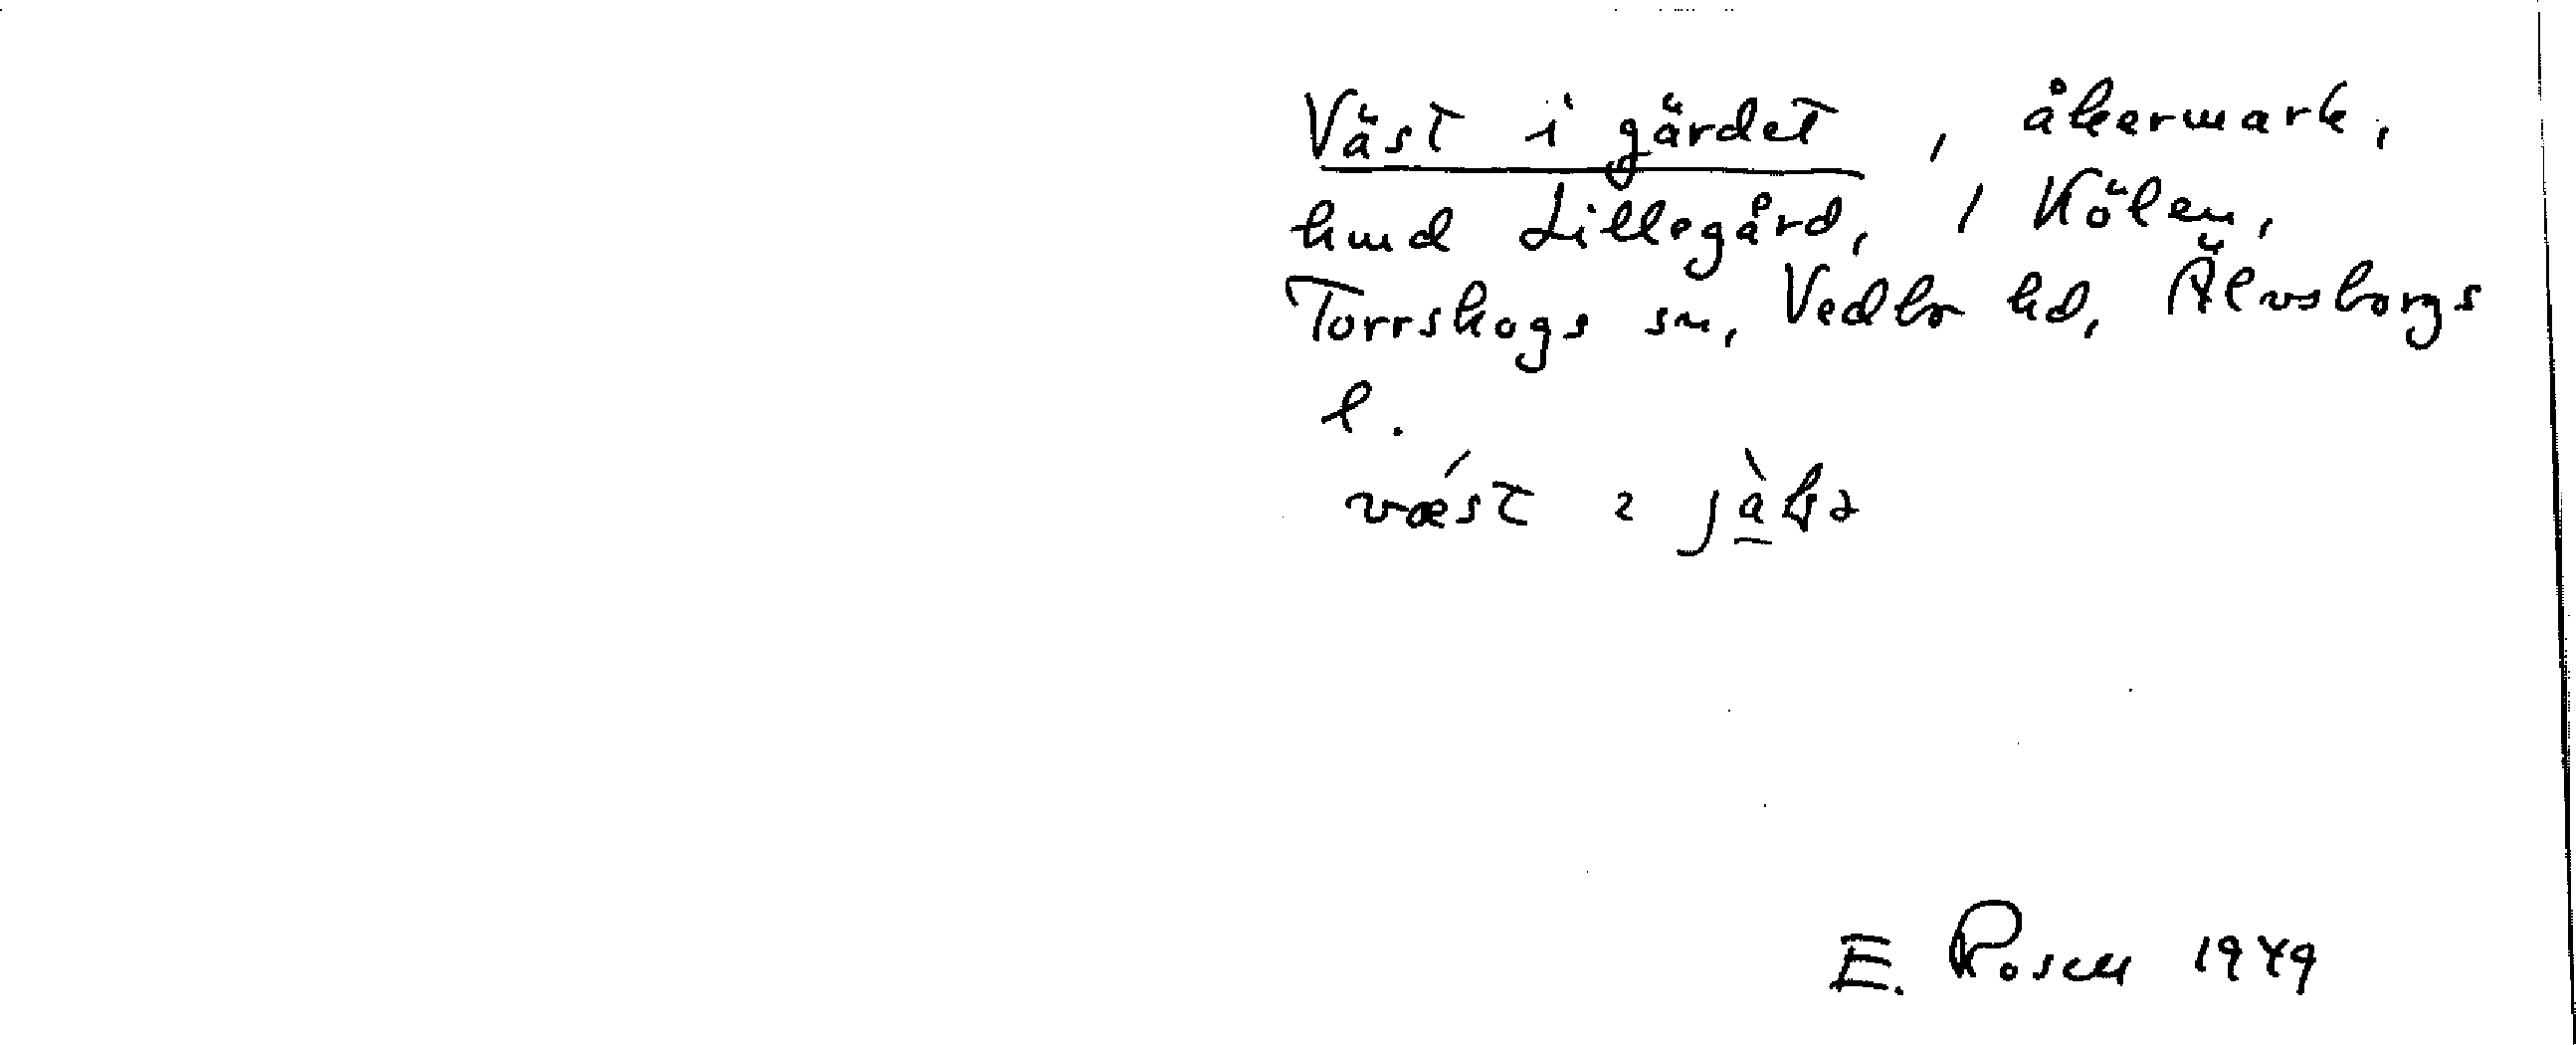 Väst i gärdet, åkermark,
hmd Lillegård, 1 Kölen,
Torrskogs sn, Vedbo hd, Älvsborgs
l.
væst
E. Rosell 1949